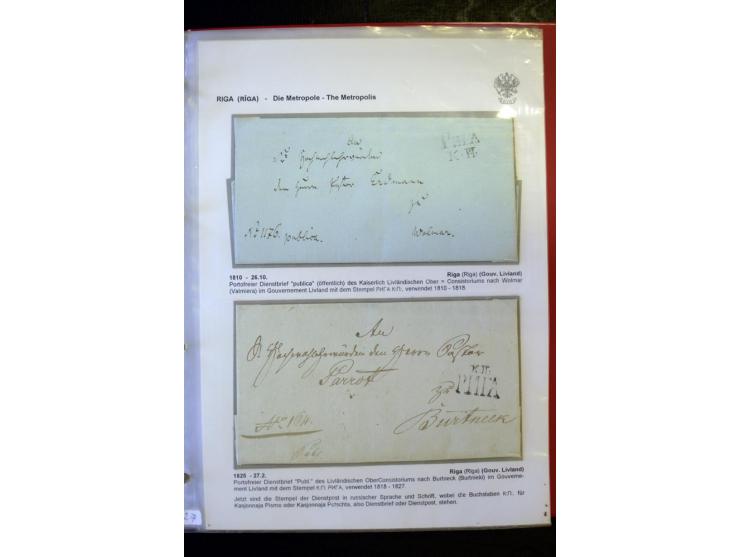 RIGA (RĪGA) - Die Metropole - The Metropolis
An
dem Herrn Pastor Erdmann
zu
No 1176. publica. Wolmar.
РИГА
К.П.
1810 - 26.10. Riga (Rīga) (Gouv. Livland)
Portofreier Dienstbrief "publica" (öffentlich) des Kaiserlich Livländischen Ober = Consistoriums nach Wolmar
(Valmiera) im Gouvernement Livland mit dem Stempel РИГА К.П:, verwendet 1810 - 1818.
An
Hochwohlehrwürden den Herrn Pastor
Parrot
zu
Burtneek
К.П.
РИГА
1825 - 27.2. Riga (Rīga) (Gouv. Livland)
Portofreier Dienstbrief "Publ." des Livländischen OberConsistoriums nach Burtneck (Burtnieki) im Gouverne-
ment Livland mit dem Stempel К.П. РИГА, verwendet 1818 - 1827.
Jetzt sind die Stempel der Dienstpost in russischer Sprache und Schrift, wobei die Buchstaben К.П., für
Kasjonnaja Pismo oder Kasjonnaja Potschta, also Dienstbrief oder Dienstpost, stehen.
27